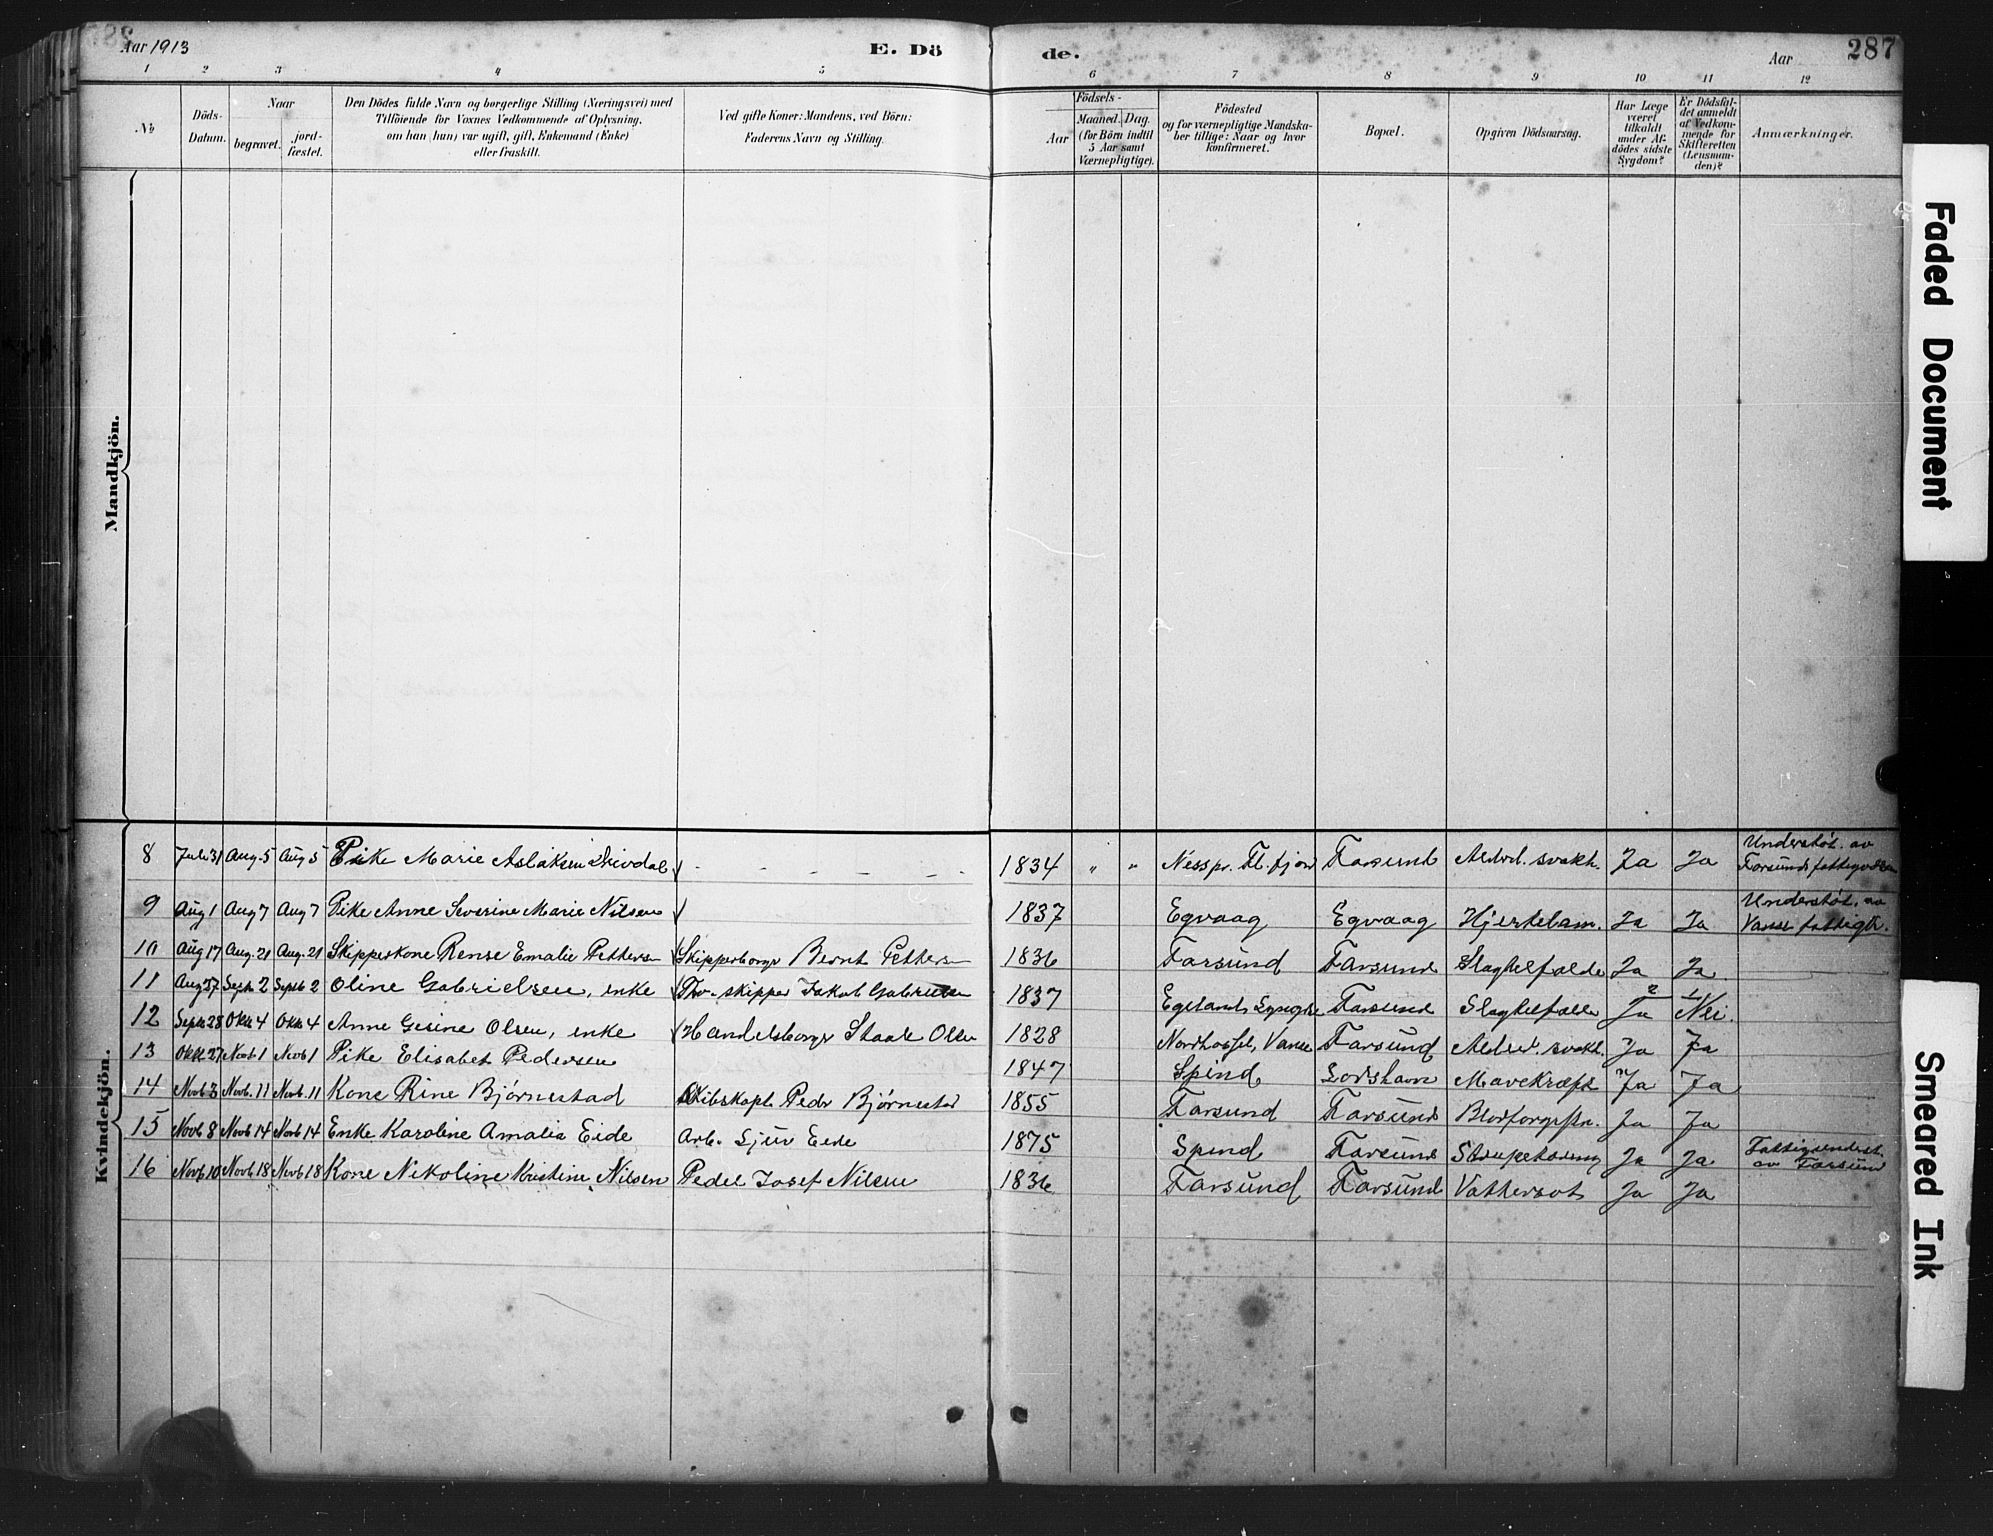 Aar 1913 E. Dö de. Aar 287
1 2 3 4 5 6 7 8 9 10 11 12
№ Döds-Datum. Naar begravet. jord-fæstet. Den Dödes fulde Navn og borgerlige Stilling (Næringsvei) med Tilföiende for Voxnes Vedkommende af Oplysning, om han (hun) var ugift, gift, Enkemand (Enke) eller fraskilt. Ved gifte Koner: Mandens, ved Börn: Faderens Navn og Stilling. Aar Födsels- Maaned. Dag. (for Börn indtil 5 Aar samt Værnepligtige). Födested og for værnepligtige Mandska-ber tillige: Naar og hvor konfirmeret. Bopæl. Opgiven Dödsaarsag. Har Læge været tilkaldt under Af-dödes sidste Sygdom? Er Dödsfal-det anmeldt af Vedkom-mende for Skifteretten (Lensman-den)? Anmærkninger.
Mandkjön.
Kvindekjön.
8 Juli 31 Aug. 5 Aug 5 Pike Marie Aslaksen 1834 " " Nesspr. Fl. fjord Farsund Alderd. svakh. Ja Ja Understøt. av Farsunds
9 Aug 1 Aug 7 Aug 7 Pike Anne Severine Marie Nilsen 1837 Egvaag Egvaag Hjertelam. Ja Ja Understøt. av Vanse fattigk.
10 Aug 17 Aug. 21 Aug. 21 Skipperkone Rense Emalie Pettersen Skipperborger Bernt Pettersen 1836 Farsund Farsund Slagtilfælde Ja Ja
11 Aug 27 Septb 2 Septb 2 Oline Gabrielsen, enke skipper Jakob Gabrielsen 1837 Egeland, Lyngd. Farsund Slagtilfælde Ja Nei.
12 Septb 28 Oktb 4 Oktb 4 Anne Gesine Olsen, enke Handelsborger Staale Olsen 1828 Nordhassel, Vanse Farsund Alderd. svakh. Ja Ja
13 Oktb 27 Novb 1 Novb 1 Pike Elisabet Pedersen 1847 Spind Loshavn Mavekræft Ja Ja
14 Novb 3 Novb. 11 Novb. 11 Kone Rine Bjørnestad Skibskapt. Peder Bjørnestad 1855 Farsund Farsund Blodforgiftn. Ja Ja
15 Novb 8 Novb 14 Novb 14 Enke Karoline Amalia Eide Arb. Sjur Eide 1875 Spind Farsund Strupehoste Ja Ja Fattigunderst. av Farsund
16 Novb 10 Novb 18 Novb 18 Kone Nikoline Kristine Nilsen Pedel Josef Nilsen 1836 Farsund Farsund Vattersot Ja Ja
Faded Document
Smeared Ink